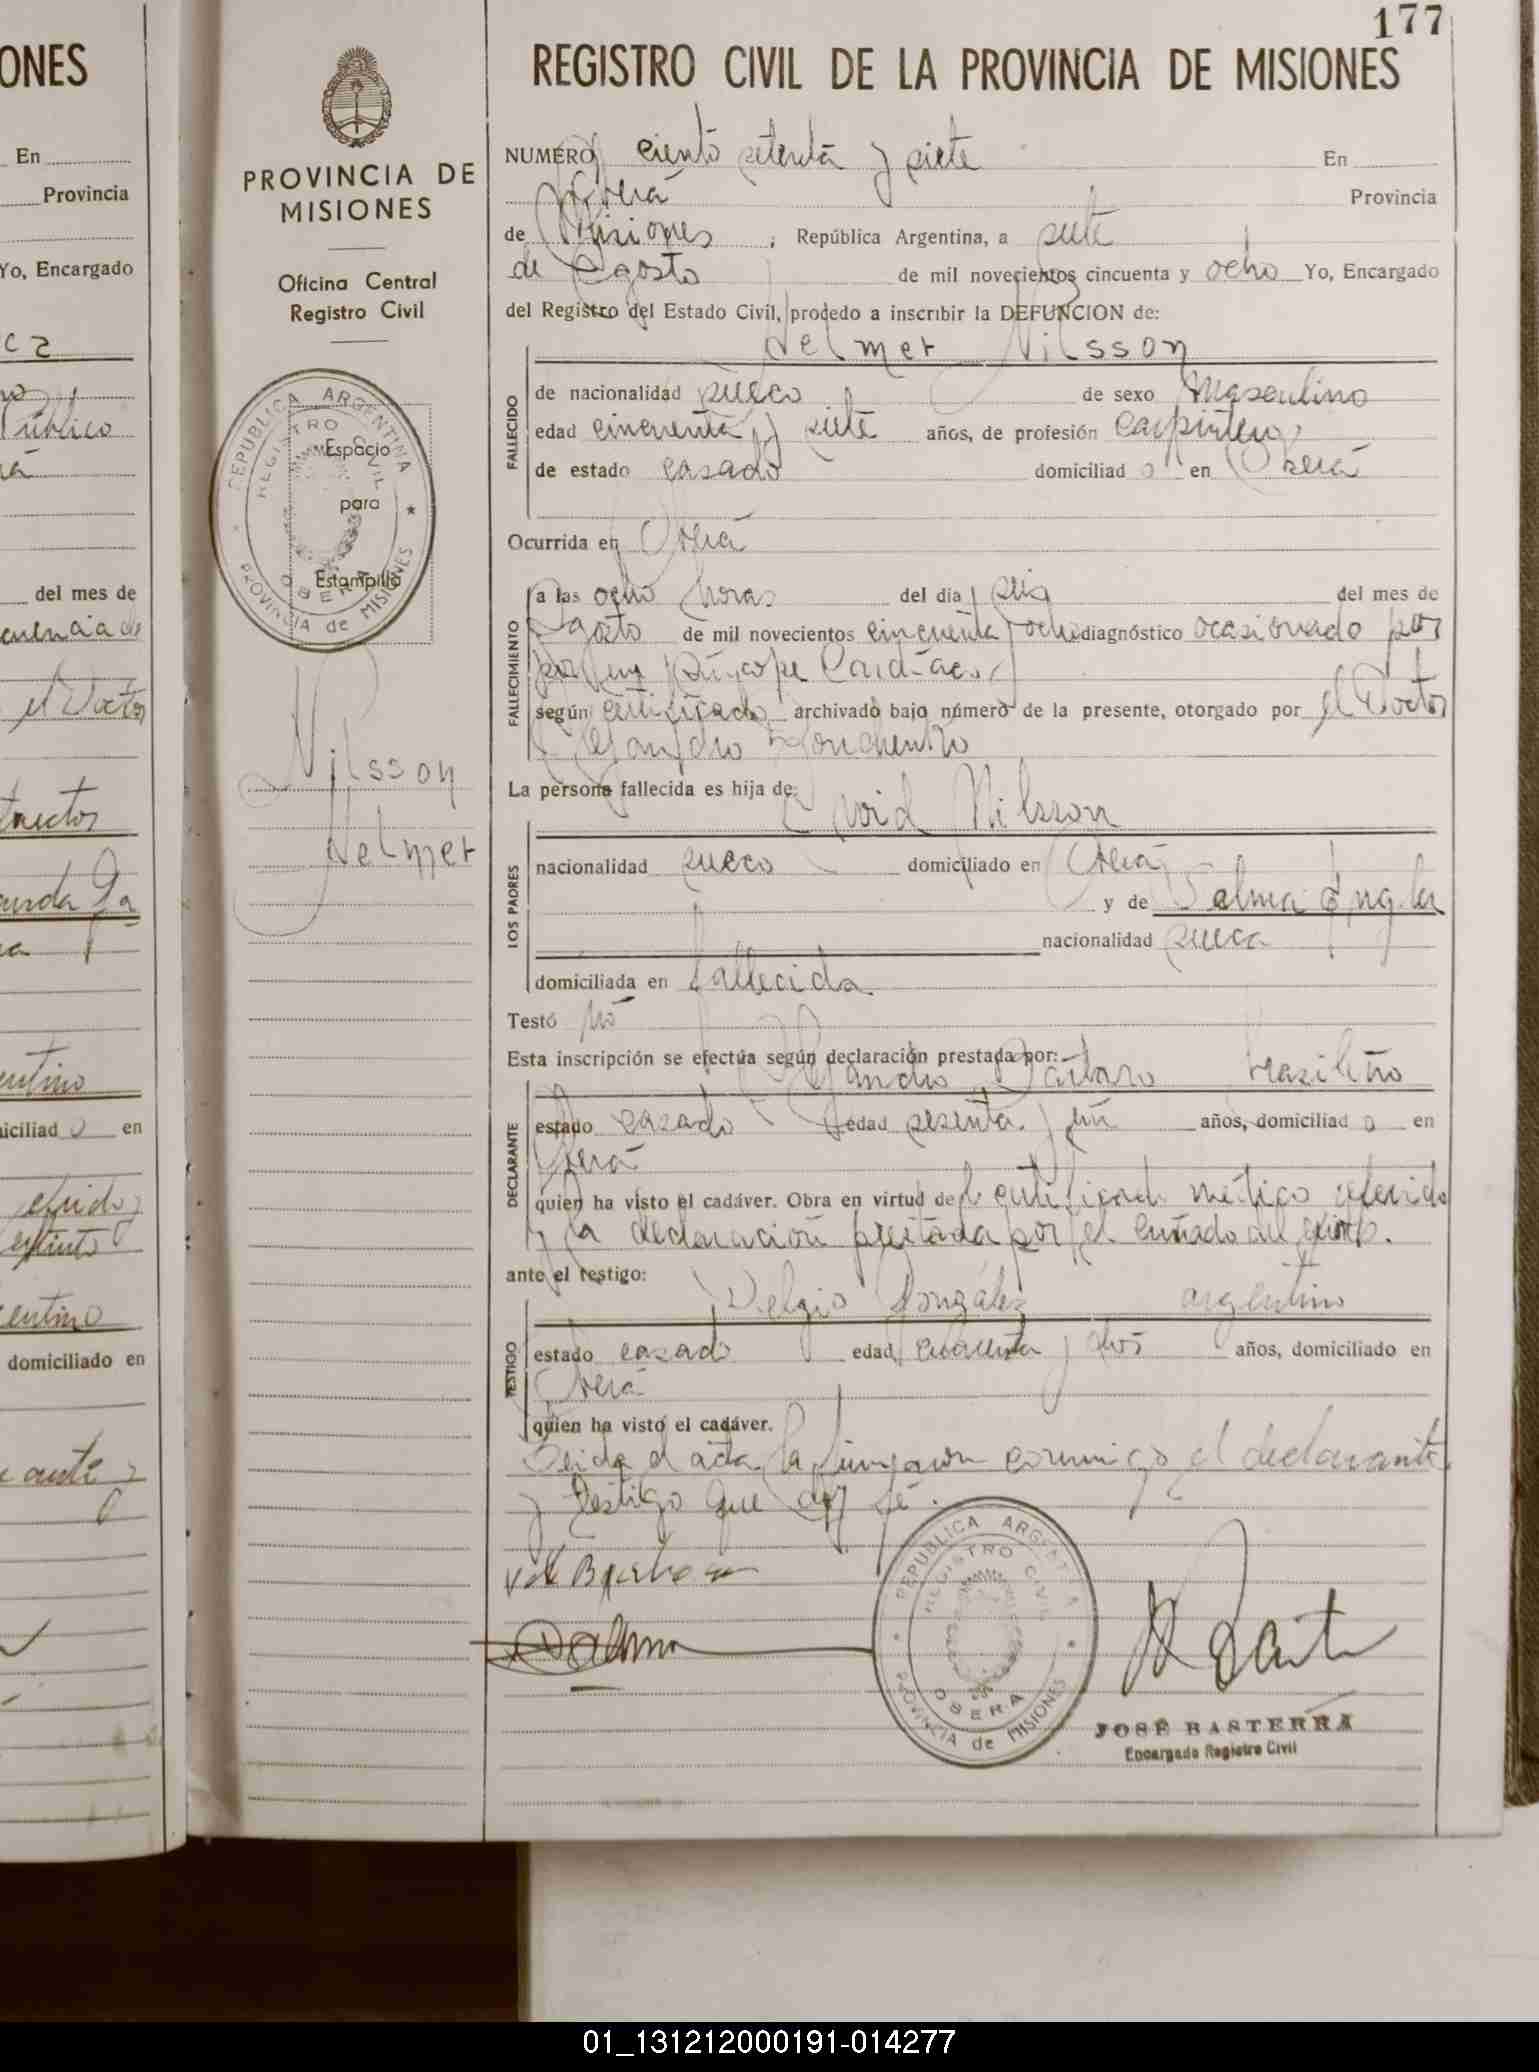 177
ONES
REGISTRO CIVIL DE LA PROVINCIA DE MISIONES
En
Provincia
Yo, Encargado
del mes de
el Doctor
domiciliad o en
domiciliado en
PROVINCIA DE
MISIONES
Oficina Central
Registro Civil
REPUBLICA ARGENTINA
REGISTRO CIVIL
OBERA
PROVINCIA de MISIONES
Espacio
para
Estampilla
Nilsson
Helmer
NUMERO ciento setenta y siete En
Oberá Provincia
de Misiones, República Argentina, a siete
de Agosto de mil novecientos cincuenta y ocho Yo, Encargado
del Registro del Estado Civil, procedo a inscribir la DEFUNCION de:
Helmer Nilsson
FALLECIDO
de nacionalidad sueco de sexo Masculino
edad cincuenta y siete años, de profesión carpintero,
de estado casado domiciliad o en Oberá
Ocurrida en Oberá
FALLECIMIENTO
a las ocho horas del día seis del mes de
Agosto de mil novecientos cincuenta y ocho diagnóstico ocasionado por
por un síncope Cardíaco,
según certificado archivado bajo número de la presente, otorgado por el Doctor
La persona fallecida es hija de:
David Nilsson
LOS PADRES
nacionalidad sueco domiciliado en Oberá
y de Selma
nacionalidad sueca
domiciliada en fallecida
Testó no
Esta inscripción se efectúa según declaración prestada por:
brasileño
DECLARANTE
estado casado edad sesenta y un años, domiciliad o en
Oberá
quien ha visto el cadáver. Obra en virtud del certificado médico referido
y la declaración prestada por el cuñado del extinto.
ante el testigo:
González argentino
TESTIGO
estado casado edad cuarenta y dos años, domiciliado en
Oberá
quien ha visto el cadáver.
Leida el acta la firmaron conmigo el declarante
y testigo que doy fé.
REPUBLICA ARGENTINA
REGISTRO CIVIL
OBERA
PROVINCIA de MISIONES
JOSÉ BASTERRA
Encargado Registro Civil
01_131212000191-014277